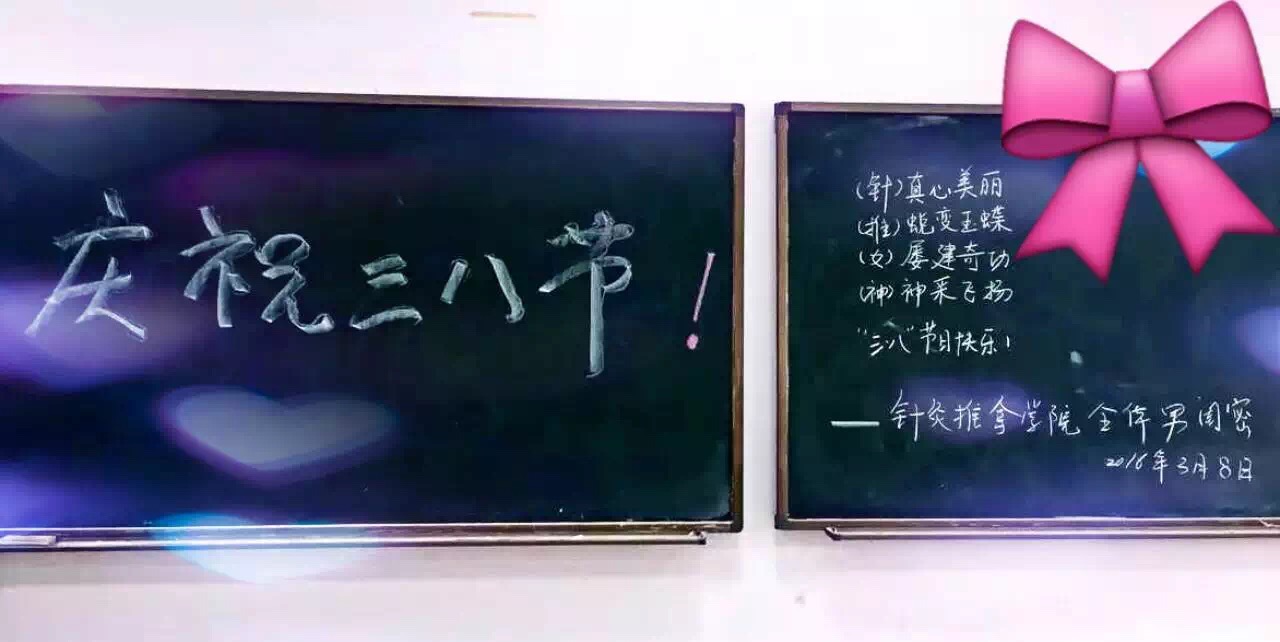 庆祝三八节！
(针)真心美丽
(推)蜕变玉蝶
(女)屡建奇功
(神)神采飞扬
“三八”节日快乐！
——针灸推拿学院全体男闺密
2016年3月8日